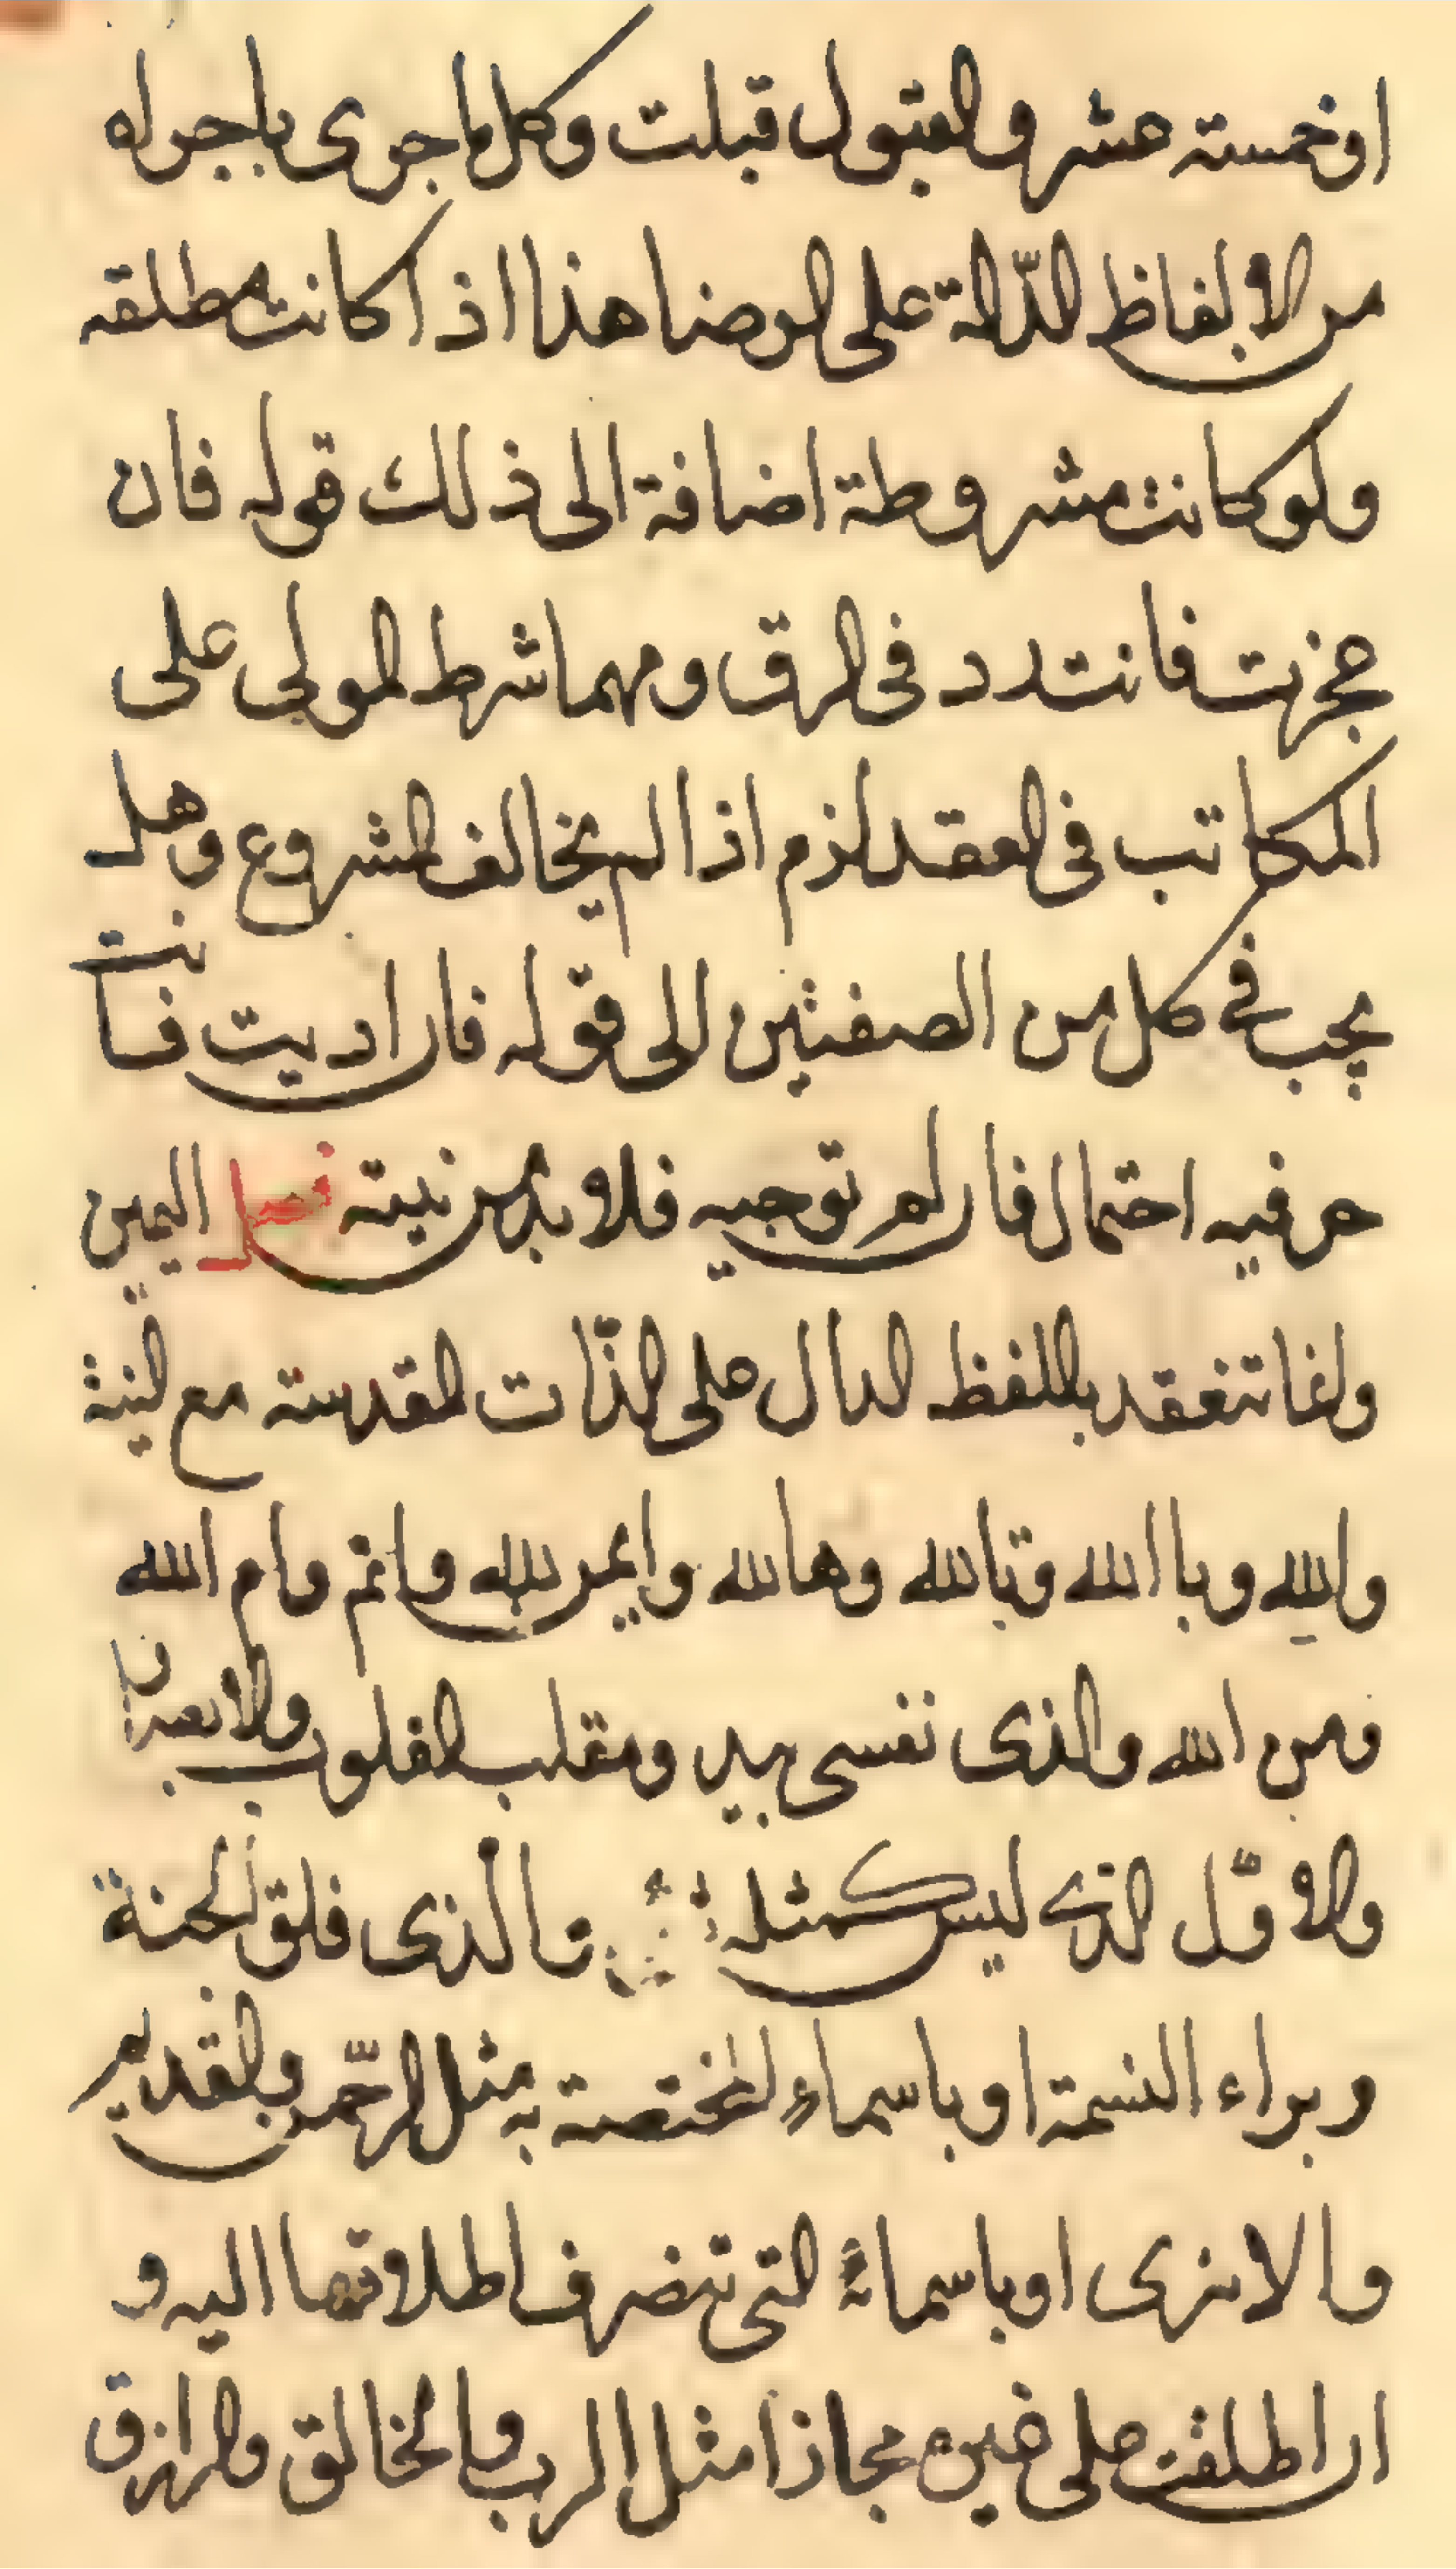 او خمسته عشر والقبول قبلت وكل ما جرى باجراه
من الالفاظ الدّالة على الرضا هذا اذا كانت مطلقه
ولو كانت مشروطة اضافة الى ذلك قوله فان
عجزت فانت رد فى الرق ومهما شرط المولى على
المكاتب فى العقد لزم اذا لم يخالف المشروع وهل
يجب فى كل من الصفتين الى قوله فان اديت فانت
حر فيه احتمال فان لم توجبه فلا بد من نيته فصل اليمين
وانما تنعقد باللفظ الدال على الذّات المقدسة مع النية
والله وبالله وتالله وهالله وايمن الله وايم وام الله
ومن الله والذى نفسى بيده ومقلب القلوب والابصار
والاوّل الذى ليس كمثله والذى فلق الحبة
وبراء النسمة او باسماء المختصة به مثل الرحّمن والقديم
والازلى او باسمائه التى تنصرف اطلاقها اليه و
ان اطلقت على غيره مجازا مثل الرب والخالق والرازق